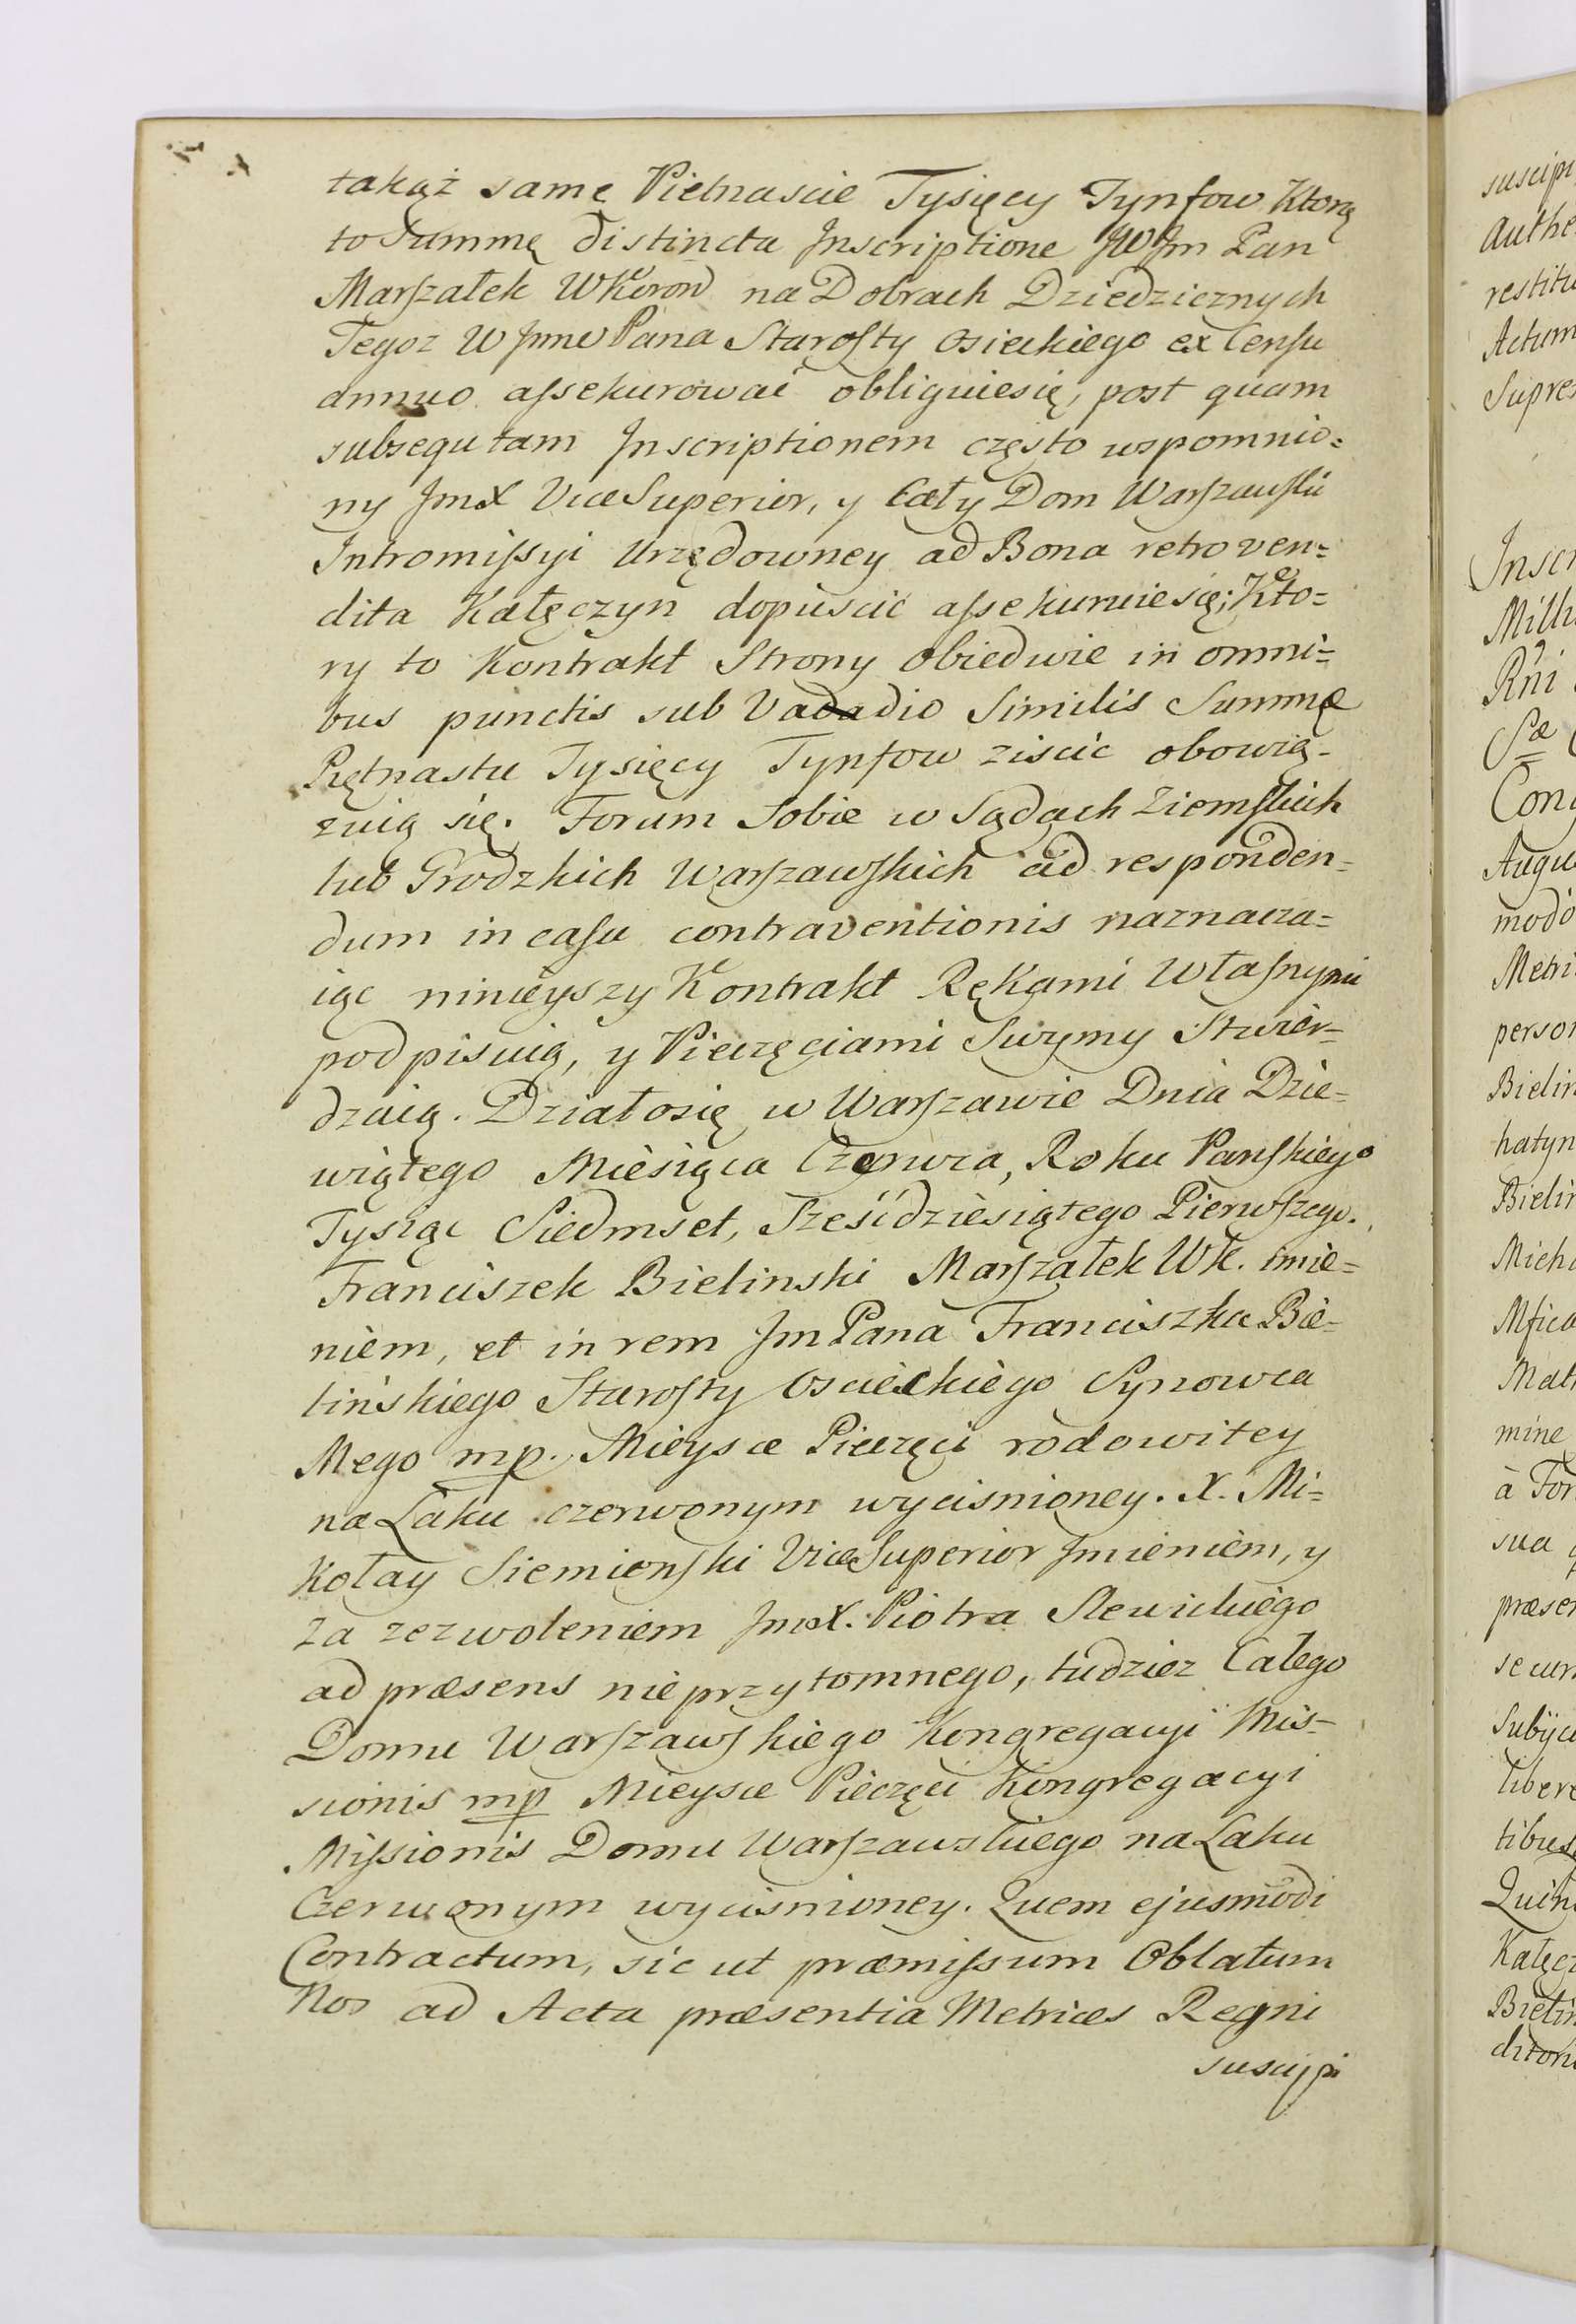 takąż samę Pietnascie Tysięcy Tynfow Ktorą
to Summę distincta Inscriptione JWJm Pan
Marszałek WKoron na Dobrach Dziedzicznych
Tegoz WJmc Pana Starosty Osieckiego ex Censu
annuo assekurowac obliguiesię, post quam
subsequtam Inscriptionem często wspomnio=
ny JmX ViceSuperior, y Cały Dom Warszawski
Intromissyi Urzędowney ad Bona retroven=
dita Kałęczyn dopuscic assekuruiesię; Kto=
ry to Kontrakt Strony obiedwie in omni=
bus punctis sub Vadadio Similis Summæ
Piętnastu Tysięcy Tynfow ziscic obowią-
zuią się. Forum Sobie w Sądach Ziemskich
lub Grodzkich Warszawskich ad responden=
dum in casu contraventionis naznacza=
iąc ninieyszy Kontrakt Rękami Własnymi
podpisuią, y Pieczęciami Swymy Stwier=
dzaią. Działosię w Warszawie Dnia Dzie=
wiątego Miesiąca Czerwca, Roku Panskiego
Tysiąc Siedmset, Sześćdziesiątego Pierwszego.
Franciszek Bielinski Marszałek WK. imie=
niem, et in rem Jm Pana Franciszka Bie=
lińskiego Starosty Osieckiego Synowca
Mego mp. Mieysce Pieczęci rodowitey
na Laku czerwonym wycisnioney. X. Mi=
kołay Siemienski ViceSuperior Jmieniem, y
za zezwoleniem JmX. Piotra Slewickiego
ad præsens nieprzytomnego, tudziez Całego
Domu Warszawskiego Kongregacyi Mis=
sionis mp Mieysce Pieczęci Kongregacyi
Missionis Domu Warszawskiego na Laku
Czerwonym wycisnioney. Quem ejusmodi
Contractum, sic ut præmissum Oblatum
Nos ad Acta præsentia Metrices Regni
suscipi